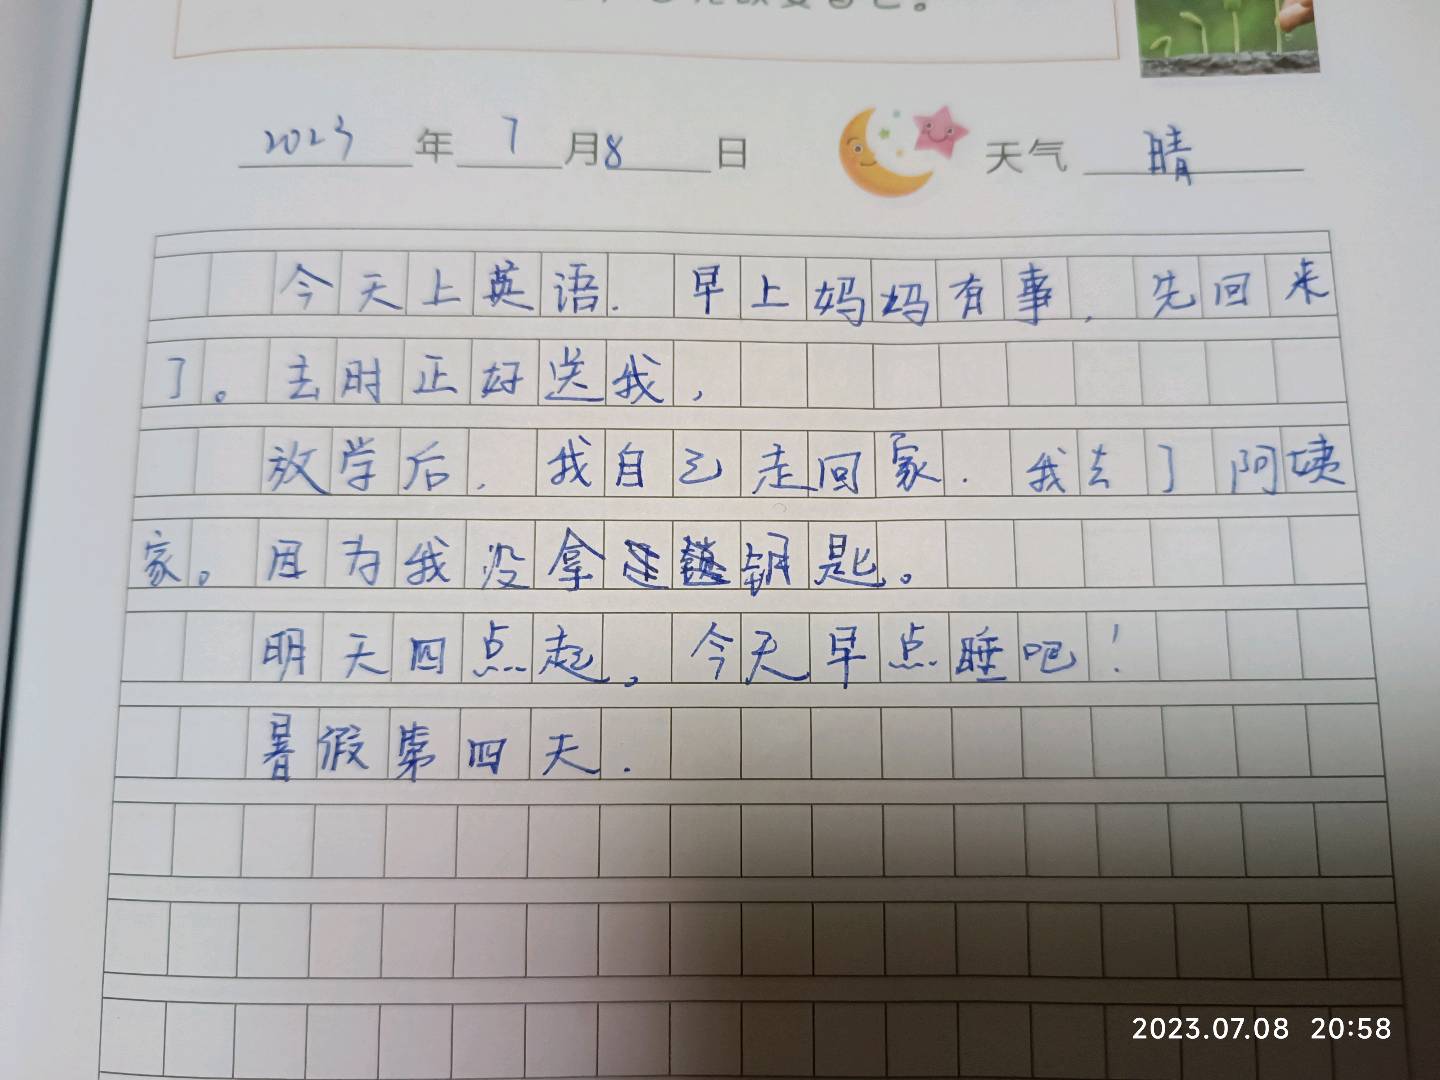 2023 年 7 月 8 日 天气 晴
今天上英语. 早上妈妈有事, 先回来
了。去时正好送我,
放学后, 我自己走回家. 我去了阿姨
家。因为我没拿钥匙。
明天四点起, 今天早点睡吧!
暑假第四天.
2023.07.08 20:58